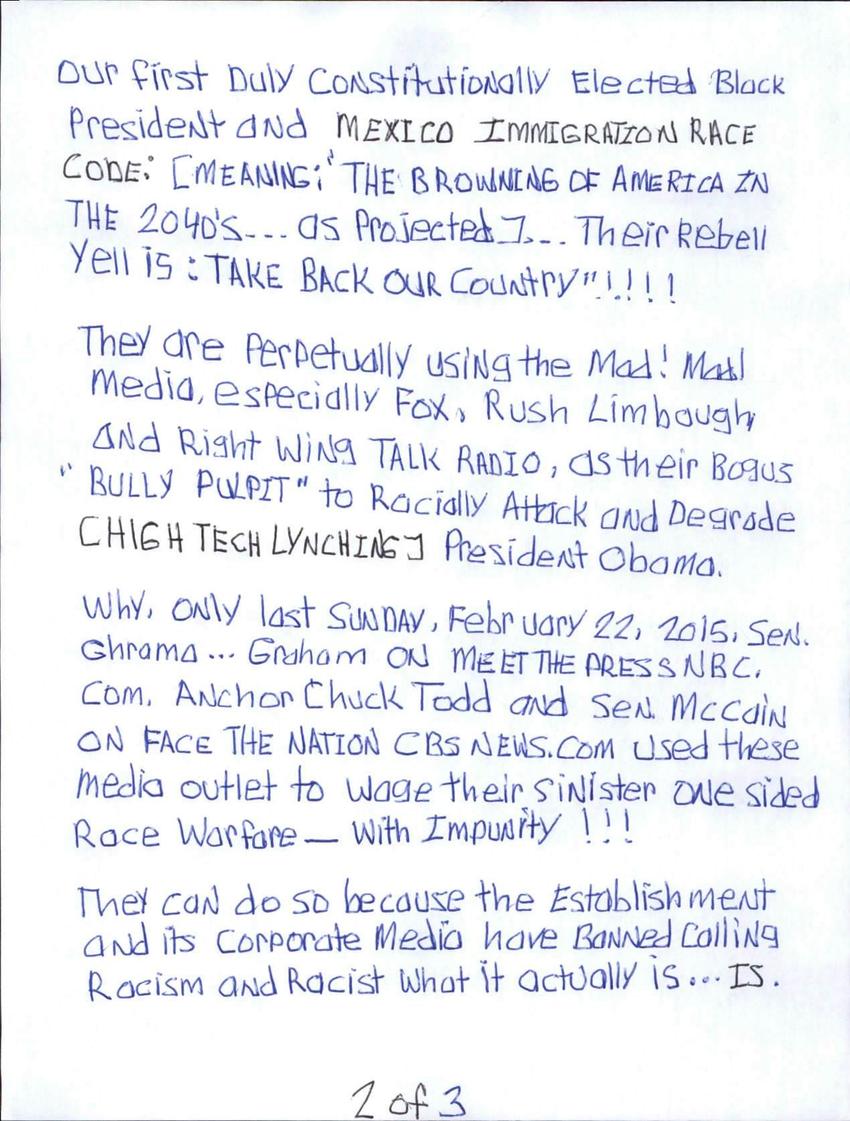 Our first Duly Constitutionally Elected Black
President and MEXICO IMMIGRATION RACE
CODE: [MEANING; "THE BROWNING OF AMERICA IN
THE 2040'S... as Projected]... Their Rebell
Yell is : TAKE BACK OUR Country"!!!!
They are Perpetually using the Mad! Mad!
Media, especially Fox, Rush Limbaugh
and Right Wing TALK RADIO, as their Bogus
"BULLY PULPIT" to Racially Attack and Degrade
[HIGH TECH LYNCHING] President Obama.
Why, only last SUNDAY, February 22, 2015, Sen.
Ghrama... Graham ON MEET THE PRESS NBC.
Com. Anchor Chuck Todd and Sen. McCain
ON FACE THE NATION CBS NEWS.Com used these
media outlet to wage their sinister one sided
Race Warfare — With Impunity !!!
They can do so because the Establishment
and its Corporate Media have Banned Calling
Racism and Racist what it actually is... IS.
2 of 3